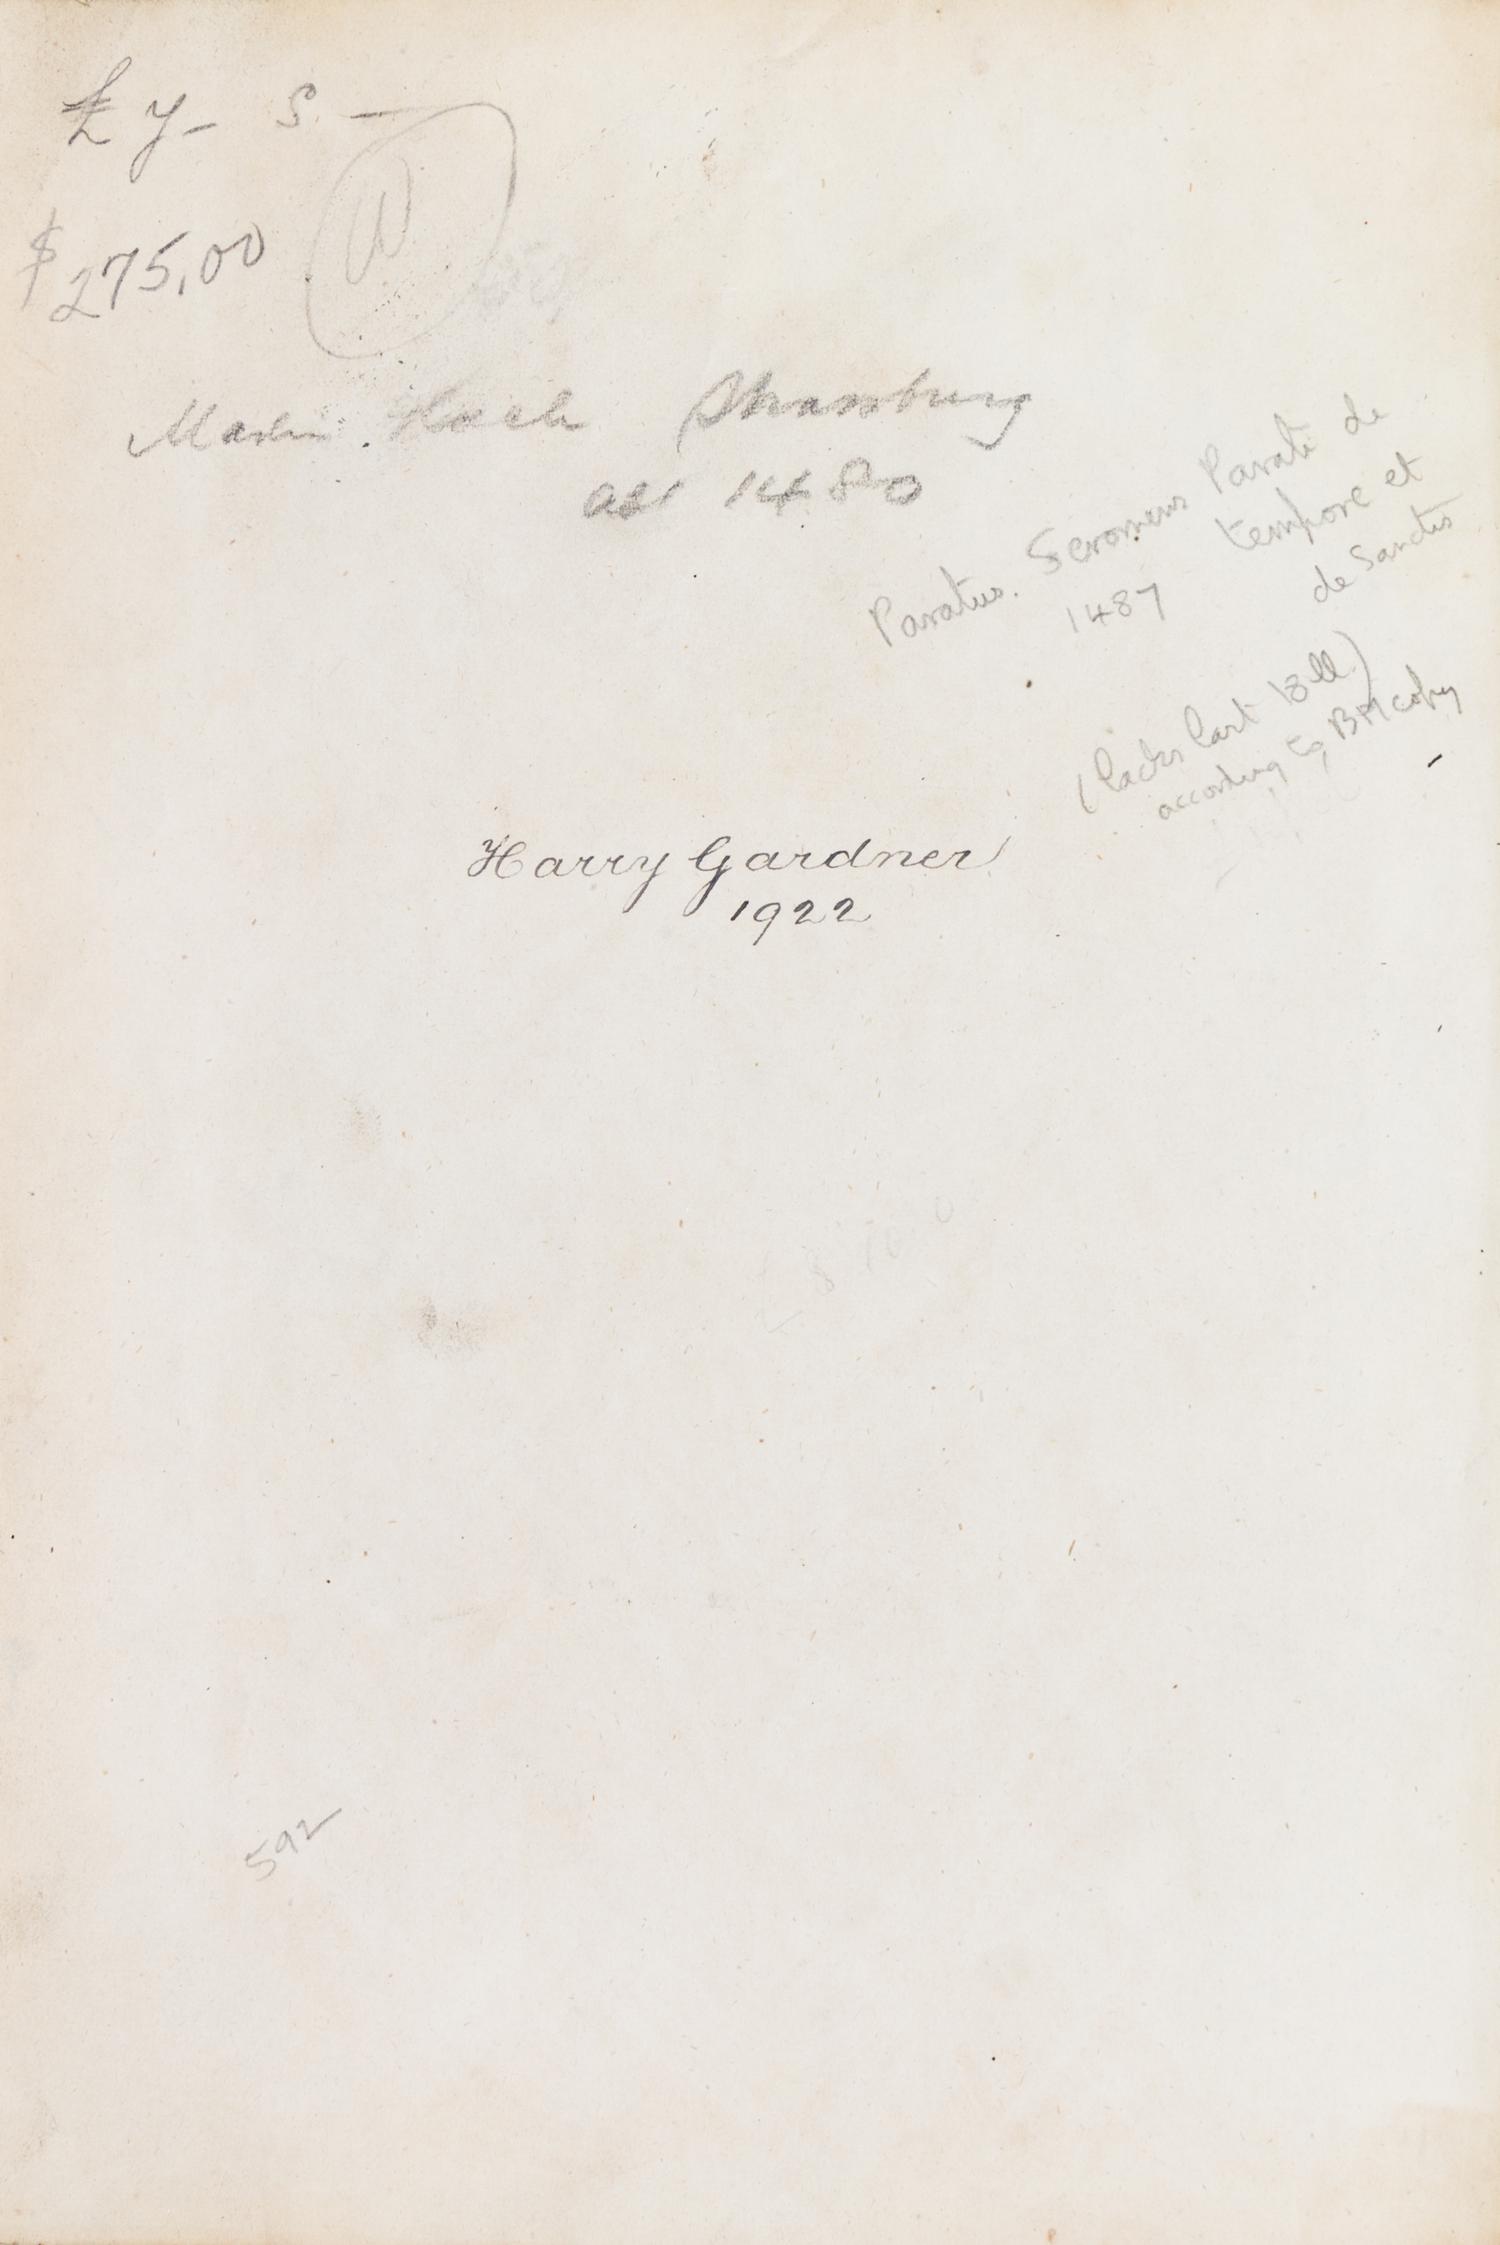 £ y - s. -
$275,00
W
Martin Flach Strassburg
abt 1480
Paratus. Seromens Parati de
tempore et
de Sanctis
1487
(lacks last 18 ll)
according to BM copy
Harry Gardner
1922
592